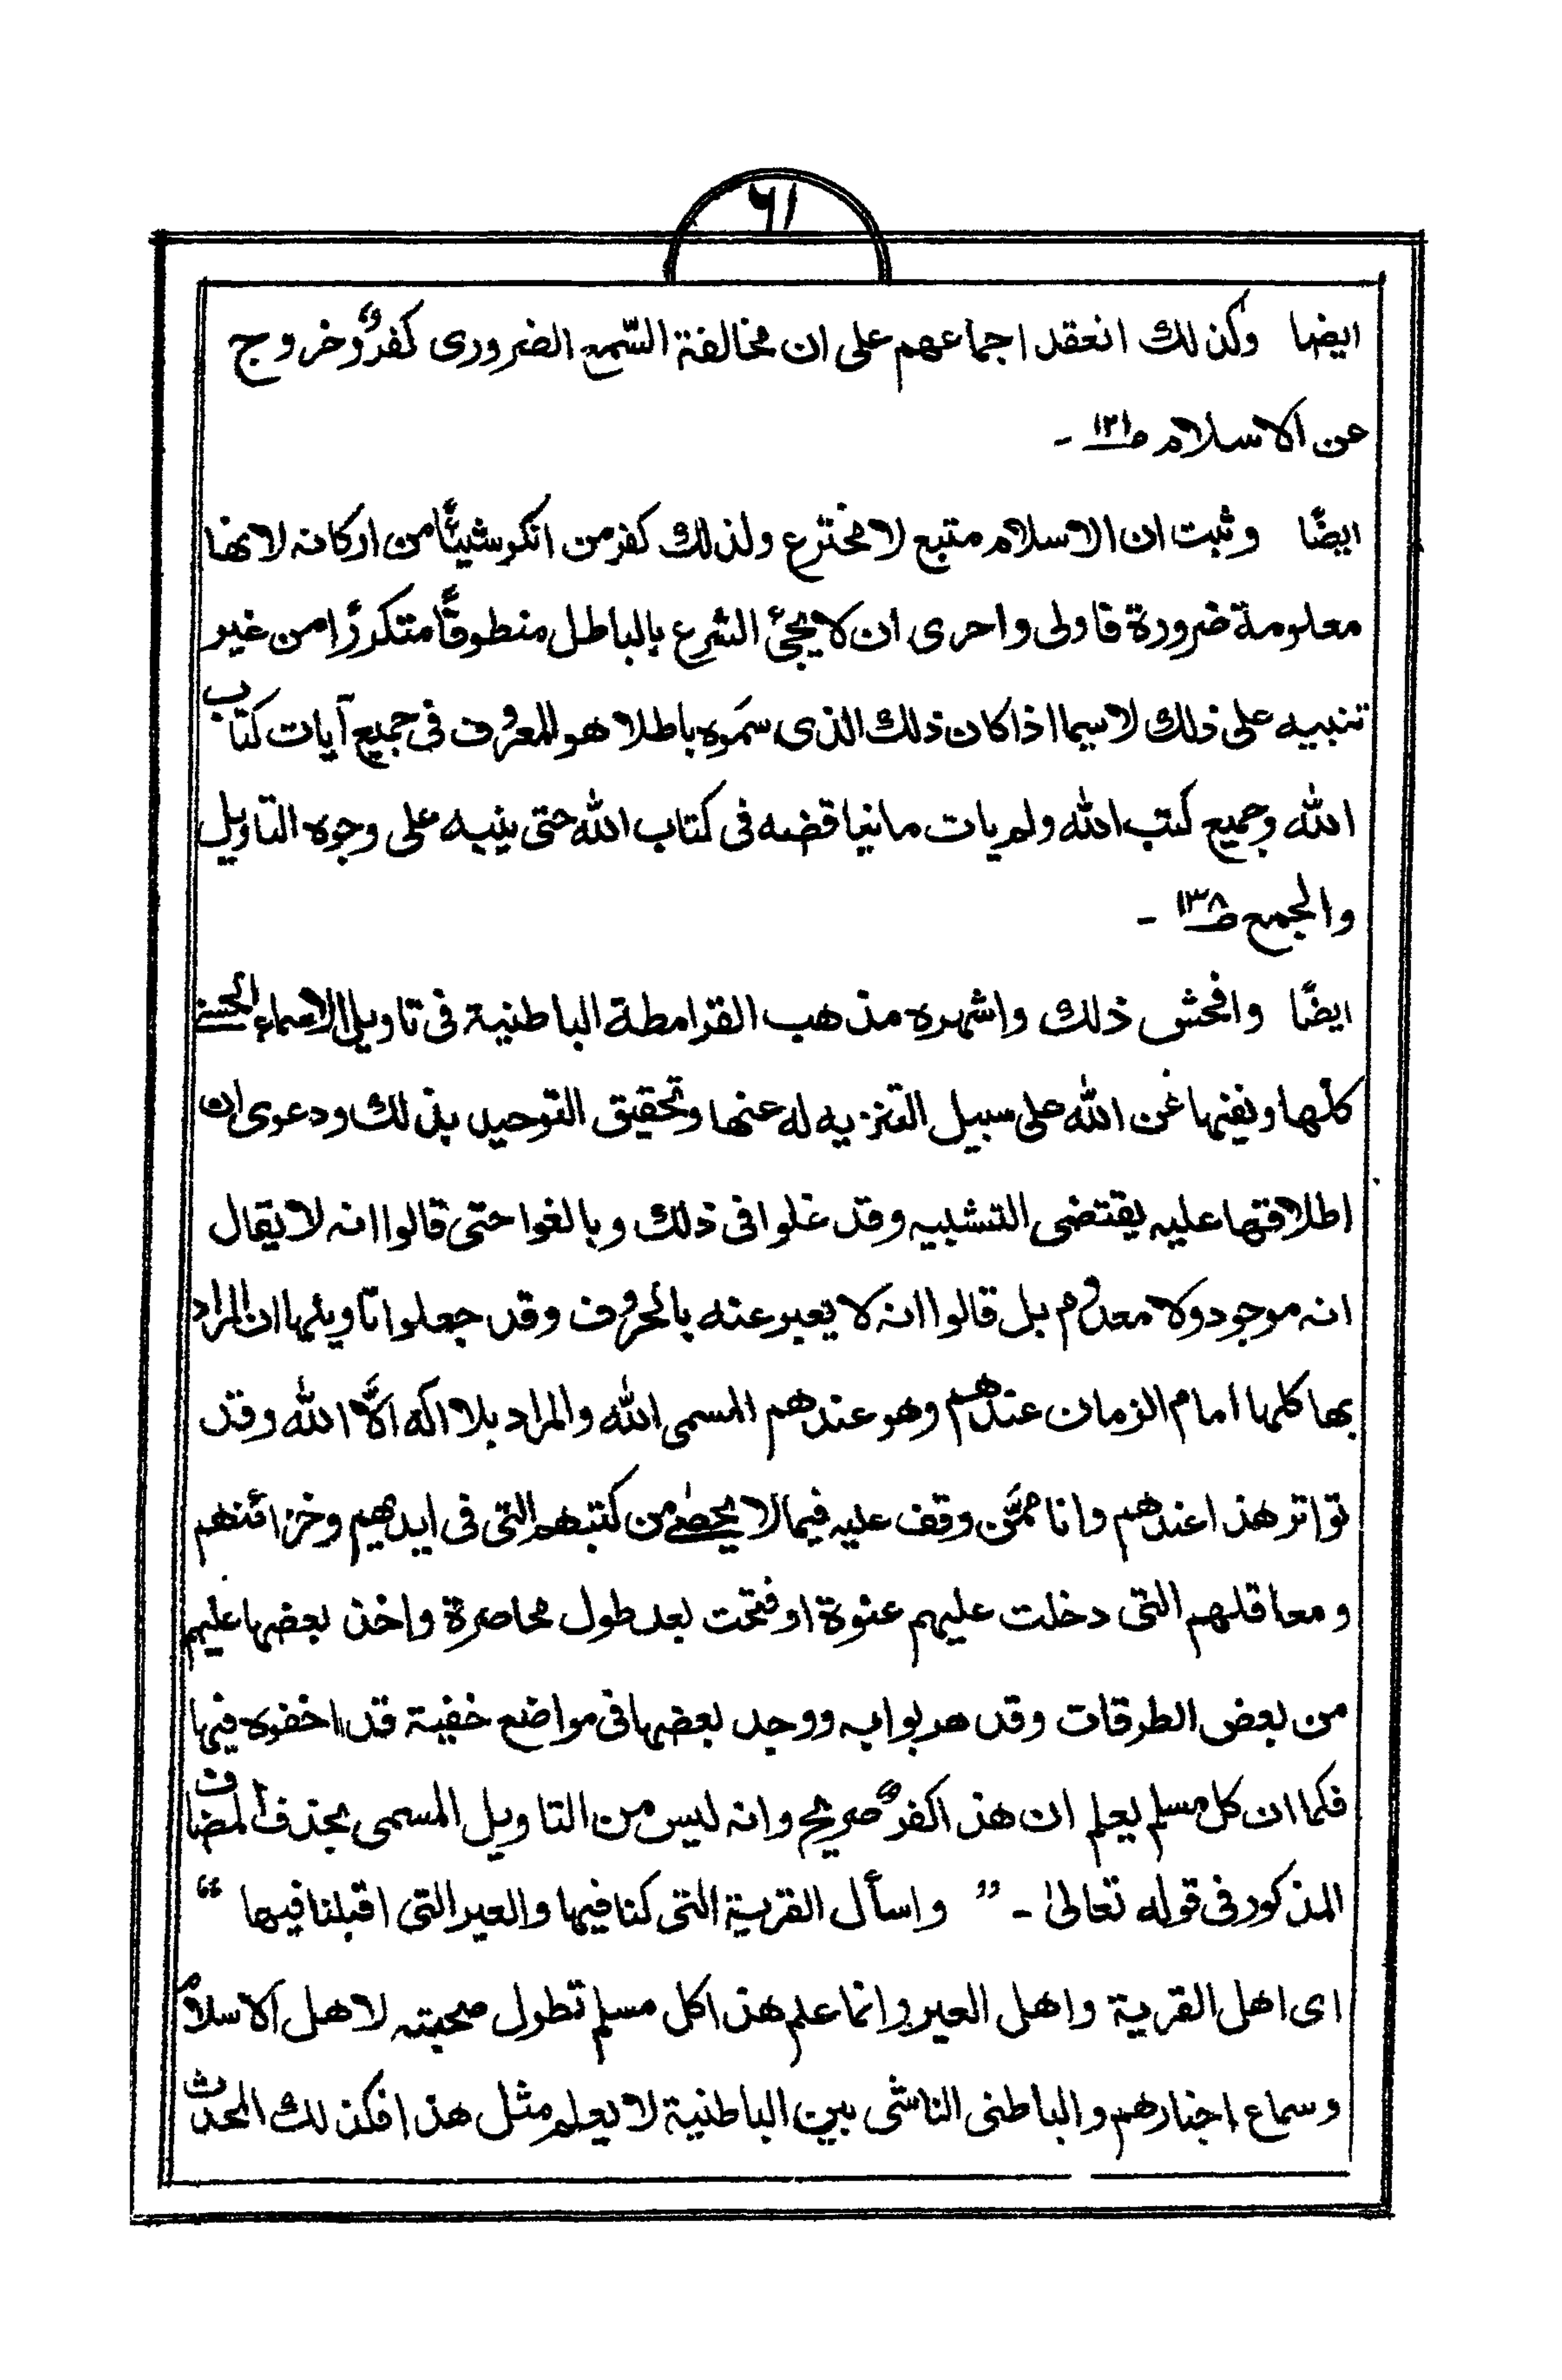 ٦١
ايضا وكذلك انعقد اجماعهم على ان مخالفة السّمع الضرورى كفرٌ وخروج
عن الاسلام ص١٢١ -
ايضًا وثبت ان الاسلام متبع لا مخترع ولذلك كفر من انكر شيئًا من اركانه لانها
معلومة ضرورة فاولى واحرى ان لا يجئ الشرع بالباطل منطوقًا متكررًا من غير
تنبيه على ذلك لاسيما اذا كان ذلك الذى سموه باطلا هو المعروف فى جميع آيات كتاب
الله وجميع كتب الله ولم يات ما نيا قضه فى كتاب الله حتى ينبه على وجوه التاويل
والجمع ص١٣٨ -
ايضًا وافحش ذلك واشهره مذهب القرامطة الباطنية فى تاويل الاسماء الحسنى
كلها ونفيها عن الله على سبيل التنزيه له عنها وتحقيق التوحيد بذلك ودعوى ان
اطلاقها عليه يقتضى التشبيه وقد غلوا فى ذلك وبالغوا حتى قالوا انه لا يقال
انه موجود ولا معدوم بل قالوا انه لا يعبر عنه بالحروف وقد جعلوا تاويلها ان المراد
بها كلها امام الزمان عندهم وهو عندهم المسمى الله والمراد بلا اله الّا الله وقد
تواتر هذا عندهم وانا ممّن وقف عليه فيما لا يحصى من كتبهم التى فى ايديهم وخزائنهم
ومعاقلهم التى دخلت عليهم عنوة او فتحت بعد طول محاصرة واخذ بعضها عليهم
من بعض الطرقات وقد هربوا به ووجد بعضها فى مواضع خفية قد اخفوه فيها
فكما ان كل مسلم يعلم ان هذا كفرٌ صريح وانه ليس من التاويل المسمى بحذف المضاف
المذكور فى قوله تعالىٰ - ” واسأل القرية التى كنا فيها والعير التى اقبلنا فيها “
اى اهل القرية واهل العير وانما علم هذا كل مسلم تطول صحبته لاهل الاسلام
وسماع اخبارهم والباطنى الناشى بين الباطنية لا يعلم مثل هذا فكذلك المحدث